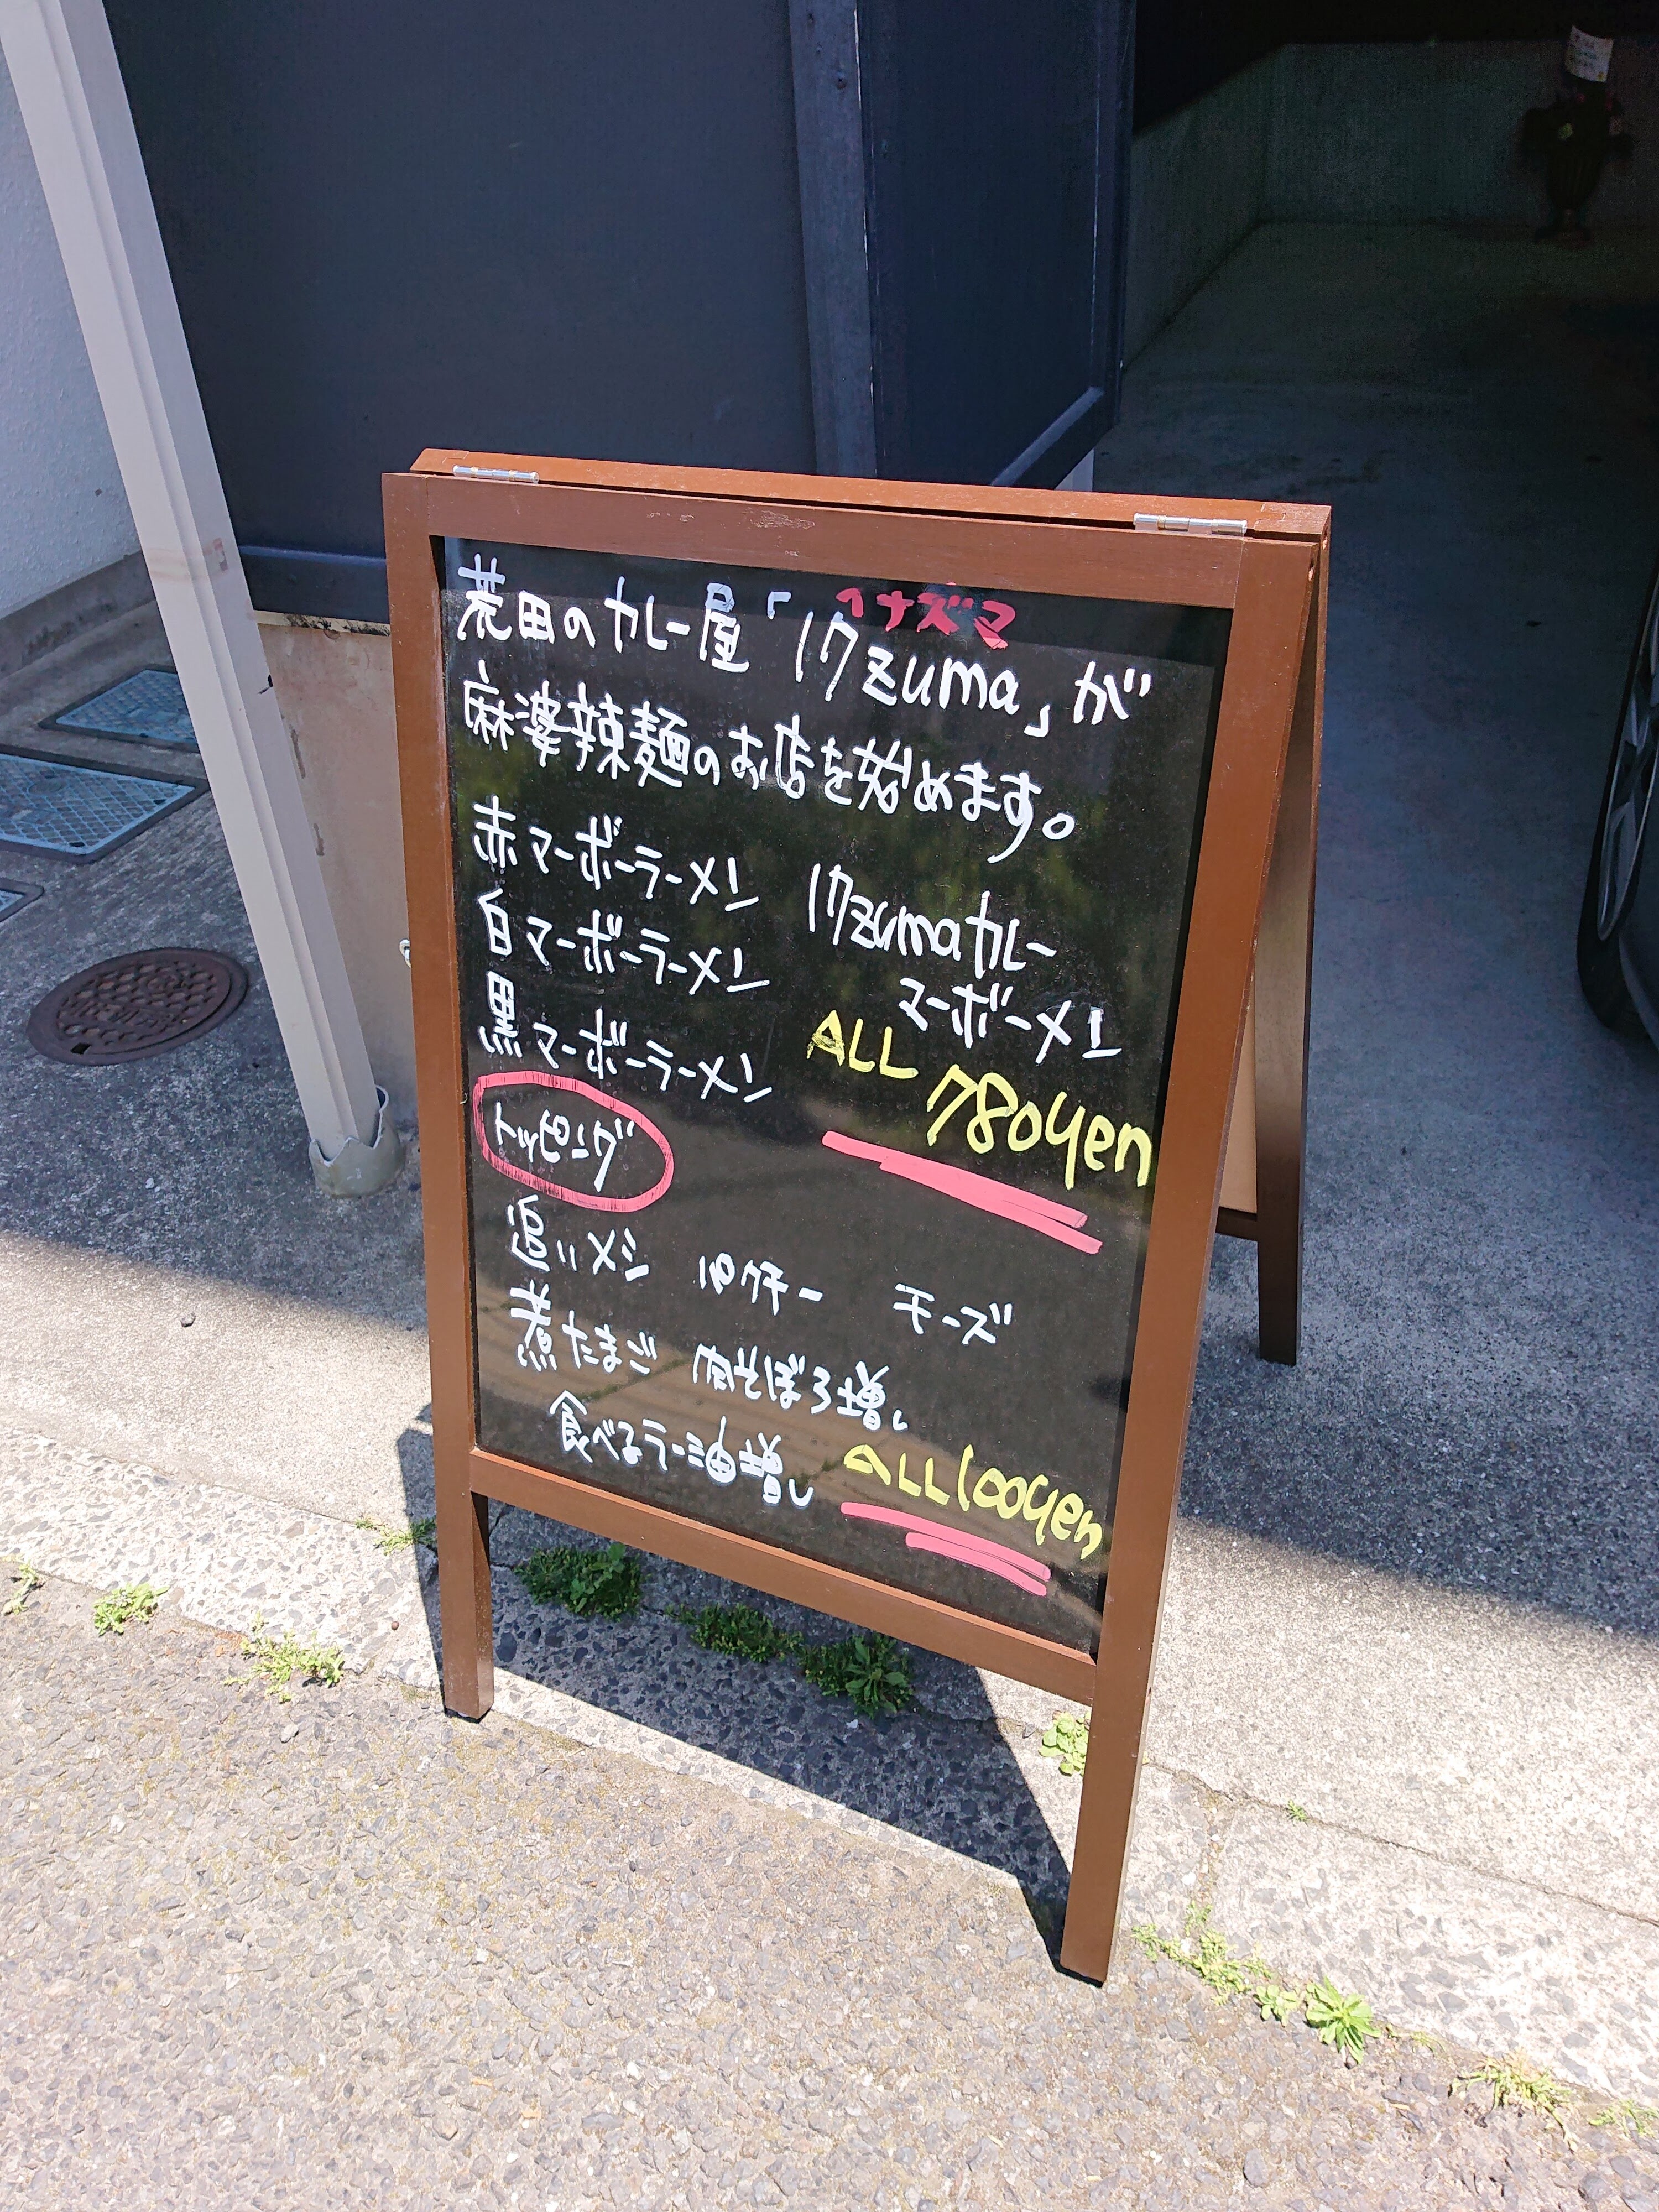 イナズマ
荒田のカレー屋「17zuma」が
麻婆辣麺のお店を始めます。
赤マーボーラーメン
白マーボーラーメン
黒マーボーラーメン
17zumaカレー
マーボーメン
ALL 780yen
トッピング
追いメシ パクチー チーズ
煮たまご 肉そぼろ増し
食べるラー油増し ALL100yen